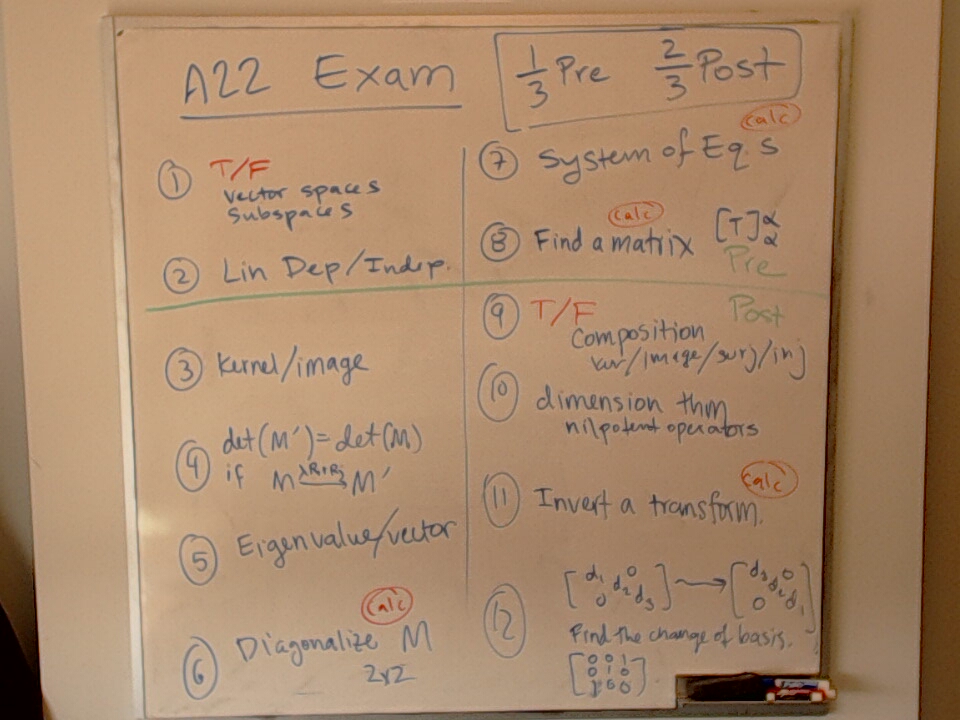 A22 Exam
1/3 Pre 2/3 Post
① T/F
vector spaces
subspaces
② Lin Dep/Indep.
③ Kernel/image
④ det(M′)=det(M)
if M λRi+Rj→ M′
⑤ Eigenvalue/vector
calc
⑥ Diagonalize M
2x2
calc
⑦ System of Eq.s
calc
⑧ Find a matrix [T]αα
Pre
⑨ T/F Post
Composition
ker/image/surj/inj
⑩ dimension thm
nilpotent operators
calc
⑪ Invert a transform.
⑫ [d1 0 d2 0 d3] → [d3 0 d2 0 d1]
Find the change of basis.
[0 0 1
0 1 0
1 0 0].